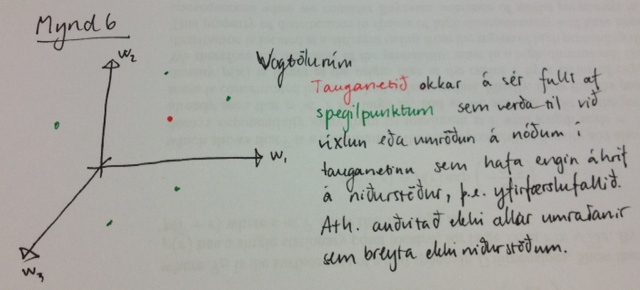 Mynd 6
w₂
w₁
w₃
Vogtölurúm
Tauganetið okkar á sér fullt af
spegilpunktum sem verða til við
víxlun eða umröðun á nóðum í
tauganetinu sem hafa engin áhrif
á niðurstöður, þ.e. yfirfærslufallið.
Ath. auðvitað ekki allar umraðanir
sem breyta ekki niðurstöðum.